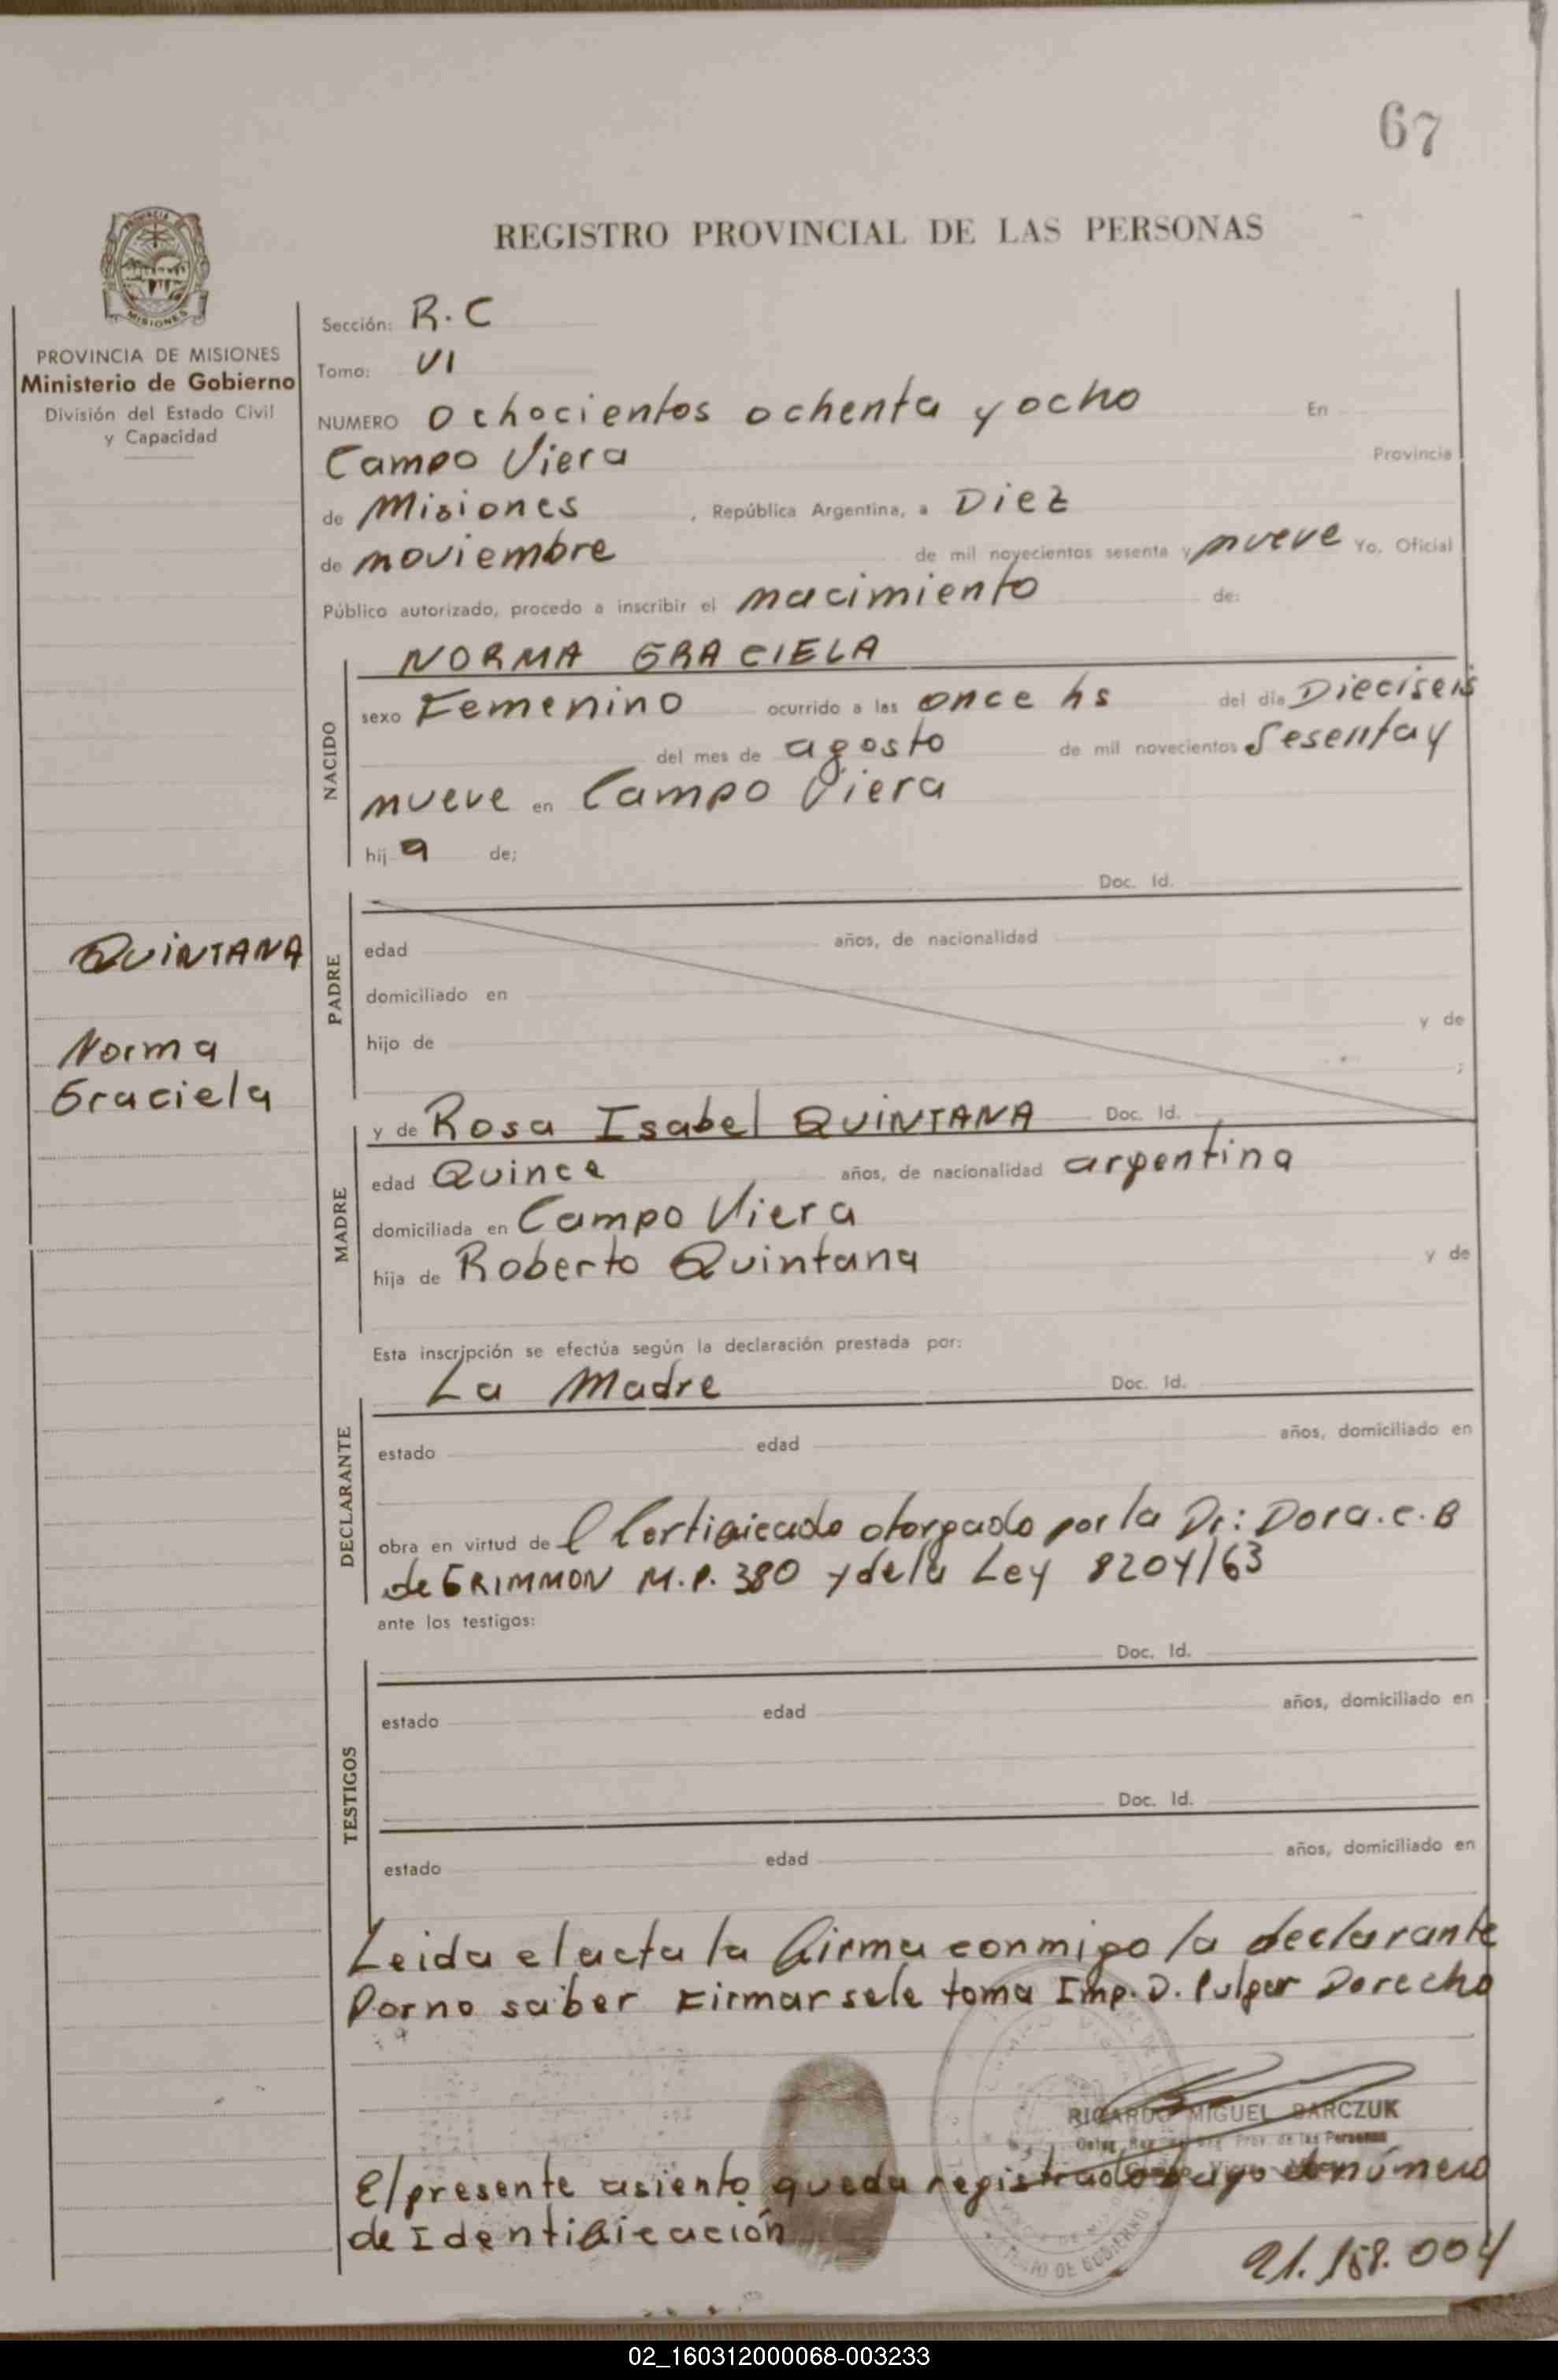 67
REGISTRO PROVINCIAL DE LAS PERSONAS
MISIONES
PROVINCIA DE MISIONES
Ministerio de Gobierno
División del Estado Civil
y Capacidad
Sección: R.C
Tomo: VI
NUMERO Ochocientos ochenta y ocho En
Campo Viera Provincia
de Misiones , República Argentina, a Diez
de noviembre de mil novecientos sesenta y nueve Yo. Oficial
Público autorizado, procedo a inscribir el nacimiento de:
NACIDO
NORMA GRACIELA
sexo Femenino ocurrido a las once hs del día Dieciseis
del mes de agosto de mil novecientos Sesenta y
nueve en Campo Viera
hij a de;
QUINTANA
Norma
Graciela
PADRE
Doc. Id.
edad años, de nacionalidad
domiciliado en
hijo de y de
;
MADRE
y de Rosa Isabel QUINTANA Doc. Id.
edad Quince años, de nacionalidad argentina
domiciliada en Campo Viera
hija de Roberto Quintana y de
Esta inscripción se efectúa según la declaración prestada por:
DECLARANTE
La Madre Doc. Id.
estado edad años, domiciliado en
obra en virtud de l Certificado otorgado por la Dr: Dora.c.B
de GRIMMON M.P. 380 y de la Ley 8204/63
ante los testigos:
TESTIGOS
Doc. Id.
estado edad años, domiciliado en
Doc. Id.
estado edad años, domiciliado en
Leida el acta la firma conmigo la declarante
Por no saber Firmar sele toma Imp. D. Pulgar Derecho
RICARDO MIGUEL BARCZUK
Prov. de las Personas
El presente asiento queda registrado bajo el número
de Identificación
21.158.004
02_160312000068-003233